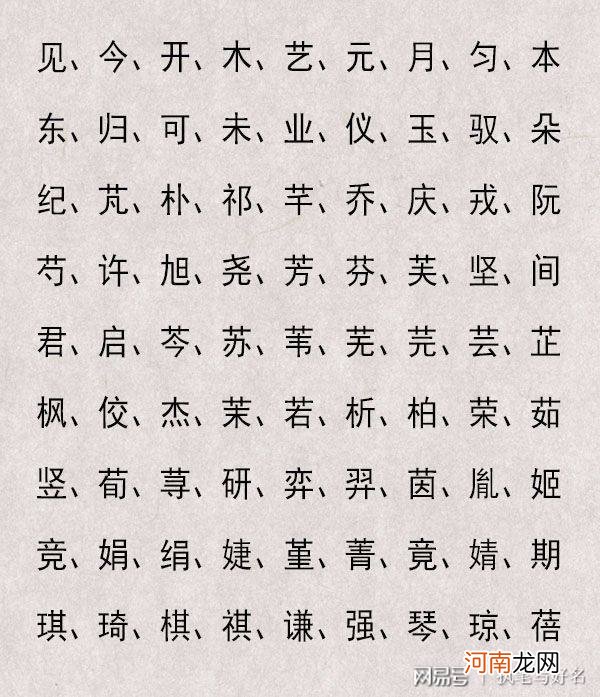 见、今、开、木、艺、元、月、匀、本
东、归、可、未、业、仪、玉、驭、朵
纪、芃、朴、祁、芊、乔、庆、戎、阮
芍、许、旭、尧、芳、芬、芙、坚、间
君、启、芩、苏、苇、芜、芫、芸、芷
枫、佼、杰、茉、若、析、柏、荣、茹
竖、荀、荨、研、弈、羿、茵、胤、姬
竞、娟、绢、婕、堇、菁、竟、婧、期
琪、琦、棋、祺、谦、强、琴、琼、蓓
网易号 | 执笔写好名
河南龙网